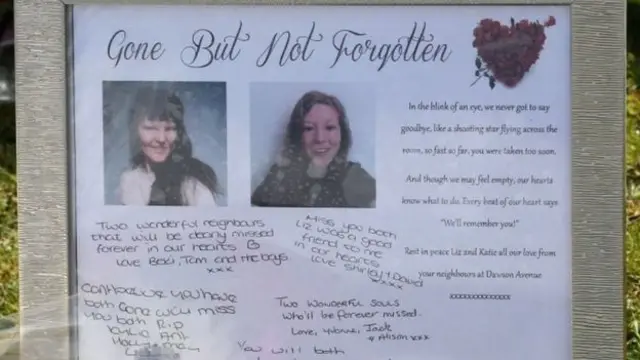 Gone But Not Forgotten
In the blink of an eye, we never got to say
goodbye, like a shooting star flying across the
room, so fast so far, you were taken too soon.
And though we may feel empty, our hearts
know what to do. Every beat of our heart says
"We'll remember you!"
Rest in peace Liz and Katie all our love from
your neighbours at Dawson Avenue
xxxxxxxxxxxxx
Two wonderful neighbours
that will be dearly missed
forever in our hearts
love Becki, Tom and the boys
xxx
Miss you both
Liz was a good
friend to me
in our hearts
love Shirley + David
xxxx
you have
both Gone will miss
you both RIP
Two Wonderful souls
who'll be forever missed.
Love, Yvonne, Jack
+ Alison xxx
You will both